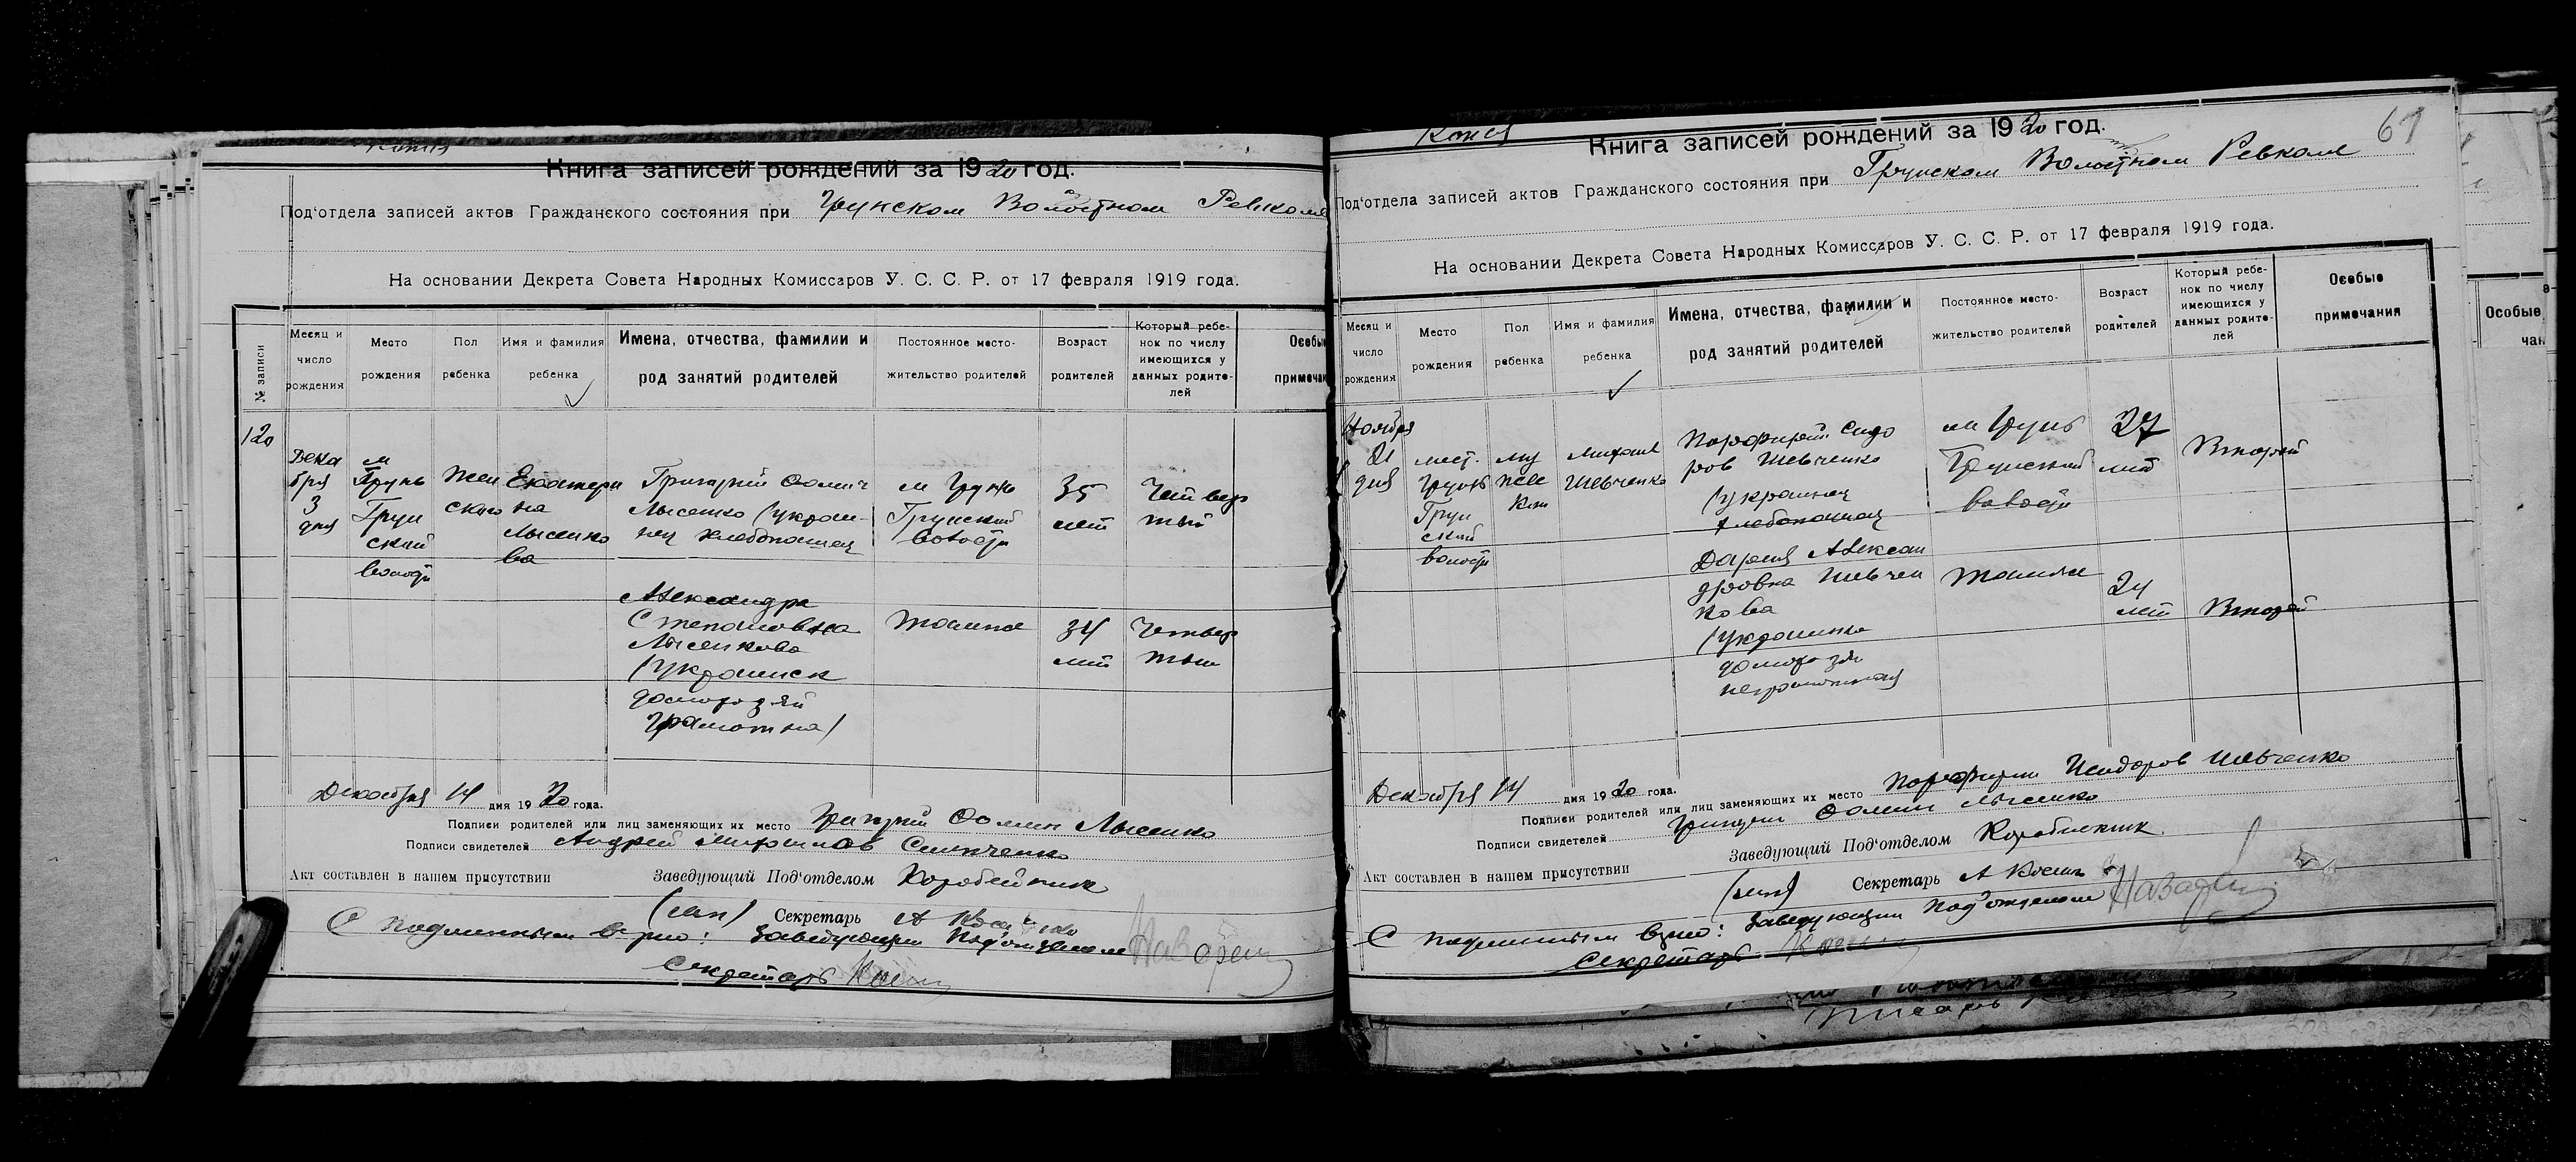 Копия
Книга записей рождений за 1920 год.
Под'отдела записей актов Гражданского состояния при Грунском Волостном Ревкоме
На основании Декрета Совета Народных Комиссаров У. С. С. Р. от 17 февраля 1919 года.
№ записи
Месяц и число рождения
Место рождения
Пол ребенка
Имя и фамилия ребенка
Имена, отчества, фамилии и род занятий родителей
Постоянное место-жительство родителей
Возраст родителей
Который ребе-нок по числу имеющихся у данных родите-лей
Особы
примечан
120
Дека
бря
3
дня
м
Грунь
Грун
ской
волости
Жен
ского
Екатери
на
Лысенко
ва
Григорий Фомич
Лысенко (украи-
нец хлебопашец
м Грунь
Грунской
волости
35
лет
Четвер
тый
Александра
Степановна
Лысенкова
(украинск
домохозяй
грамотна)
Тоже
34
лет
Четвер
тый
Декабря 14 дня 1920 года.
Подписи родителей или лиц заменяющих их место Григорий Фомин Лысенко
Подписи свидетелей Андрей
Акт составлен в нашем присутствии Заведующий Под'отделом Коробейник
Секретарь А
С подлинным верно: Заведующий Подотделом
Секретарь
Копия
61
Книга записей рождений за 1920 год.
Под'отдела записей актов Гражданского состояния при Грунском Волостном Ревкоме
На основании Декрета Совета Народных Комиссаров У. С. С. Р. от 17 февраля 1919 года.
Месяц и число рождения
Место рождения
Пол ребенка
Имя и фамилия ребенка
Имена, отчества, фамилии и род занятий родителей
Постоянное место-жительство родителей
Возраст родителей
Который ребе-нок по числу имеющихся у данных родите-лей
Особые примечания
Ноября
21
дня
мест.
Грунь
Грун
ской
волости
му
же
Михаил
Шевченко
Порфирий Сидо
ров Шевченко
(украинец
хлебопашец
м Грунь
Грунской
волости
27
лет
Второй
Дария Алексан
дровна Шевчен
кова
(украинка
домохозяй
неграмотная
Тоже
24
лет
Второй
Декабря 14 дня 1920 года.
Подписи родителей или лиц заменяющих их место Порфирий Исидоров Шевченко
Подписи свидетелей Григорий Фомин Лысенко
Акт составлен в нашем присутствии Заведующий Под'отделом Коробейник
Секретарь А
С подлинным верно: Заведующий Подотделом
Секретарь
Особые
чан